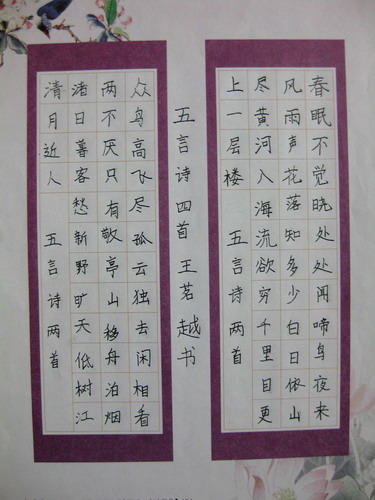 春眠不觉晓处处闻啼鸟夜来
风雨声花落知多少白日依山
尽黄河入海流欲穷千里目更
上一层楼 五言诗两首
五言诗四首 王茗越书
众鸟高飞尽孤云独去闲相看
两不厌只有敬亭山移舟泊烟
渚日暮客愁新野旷天低树江
清月近人 五言诗两首